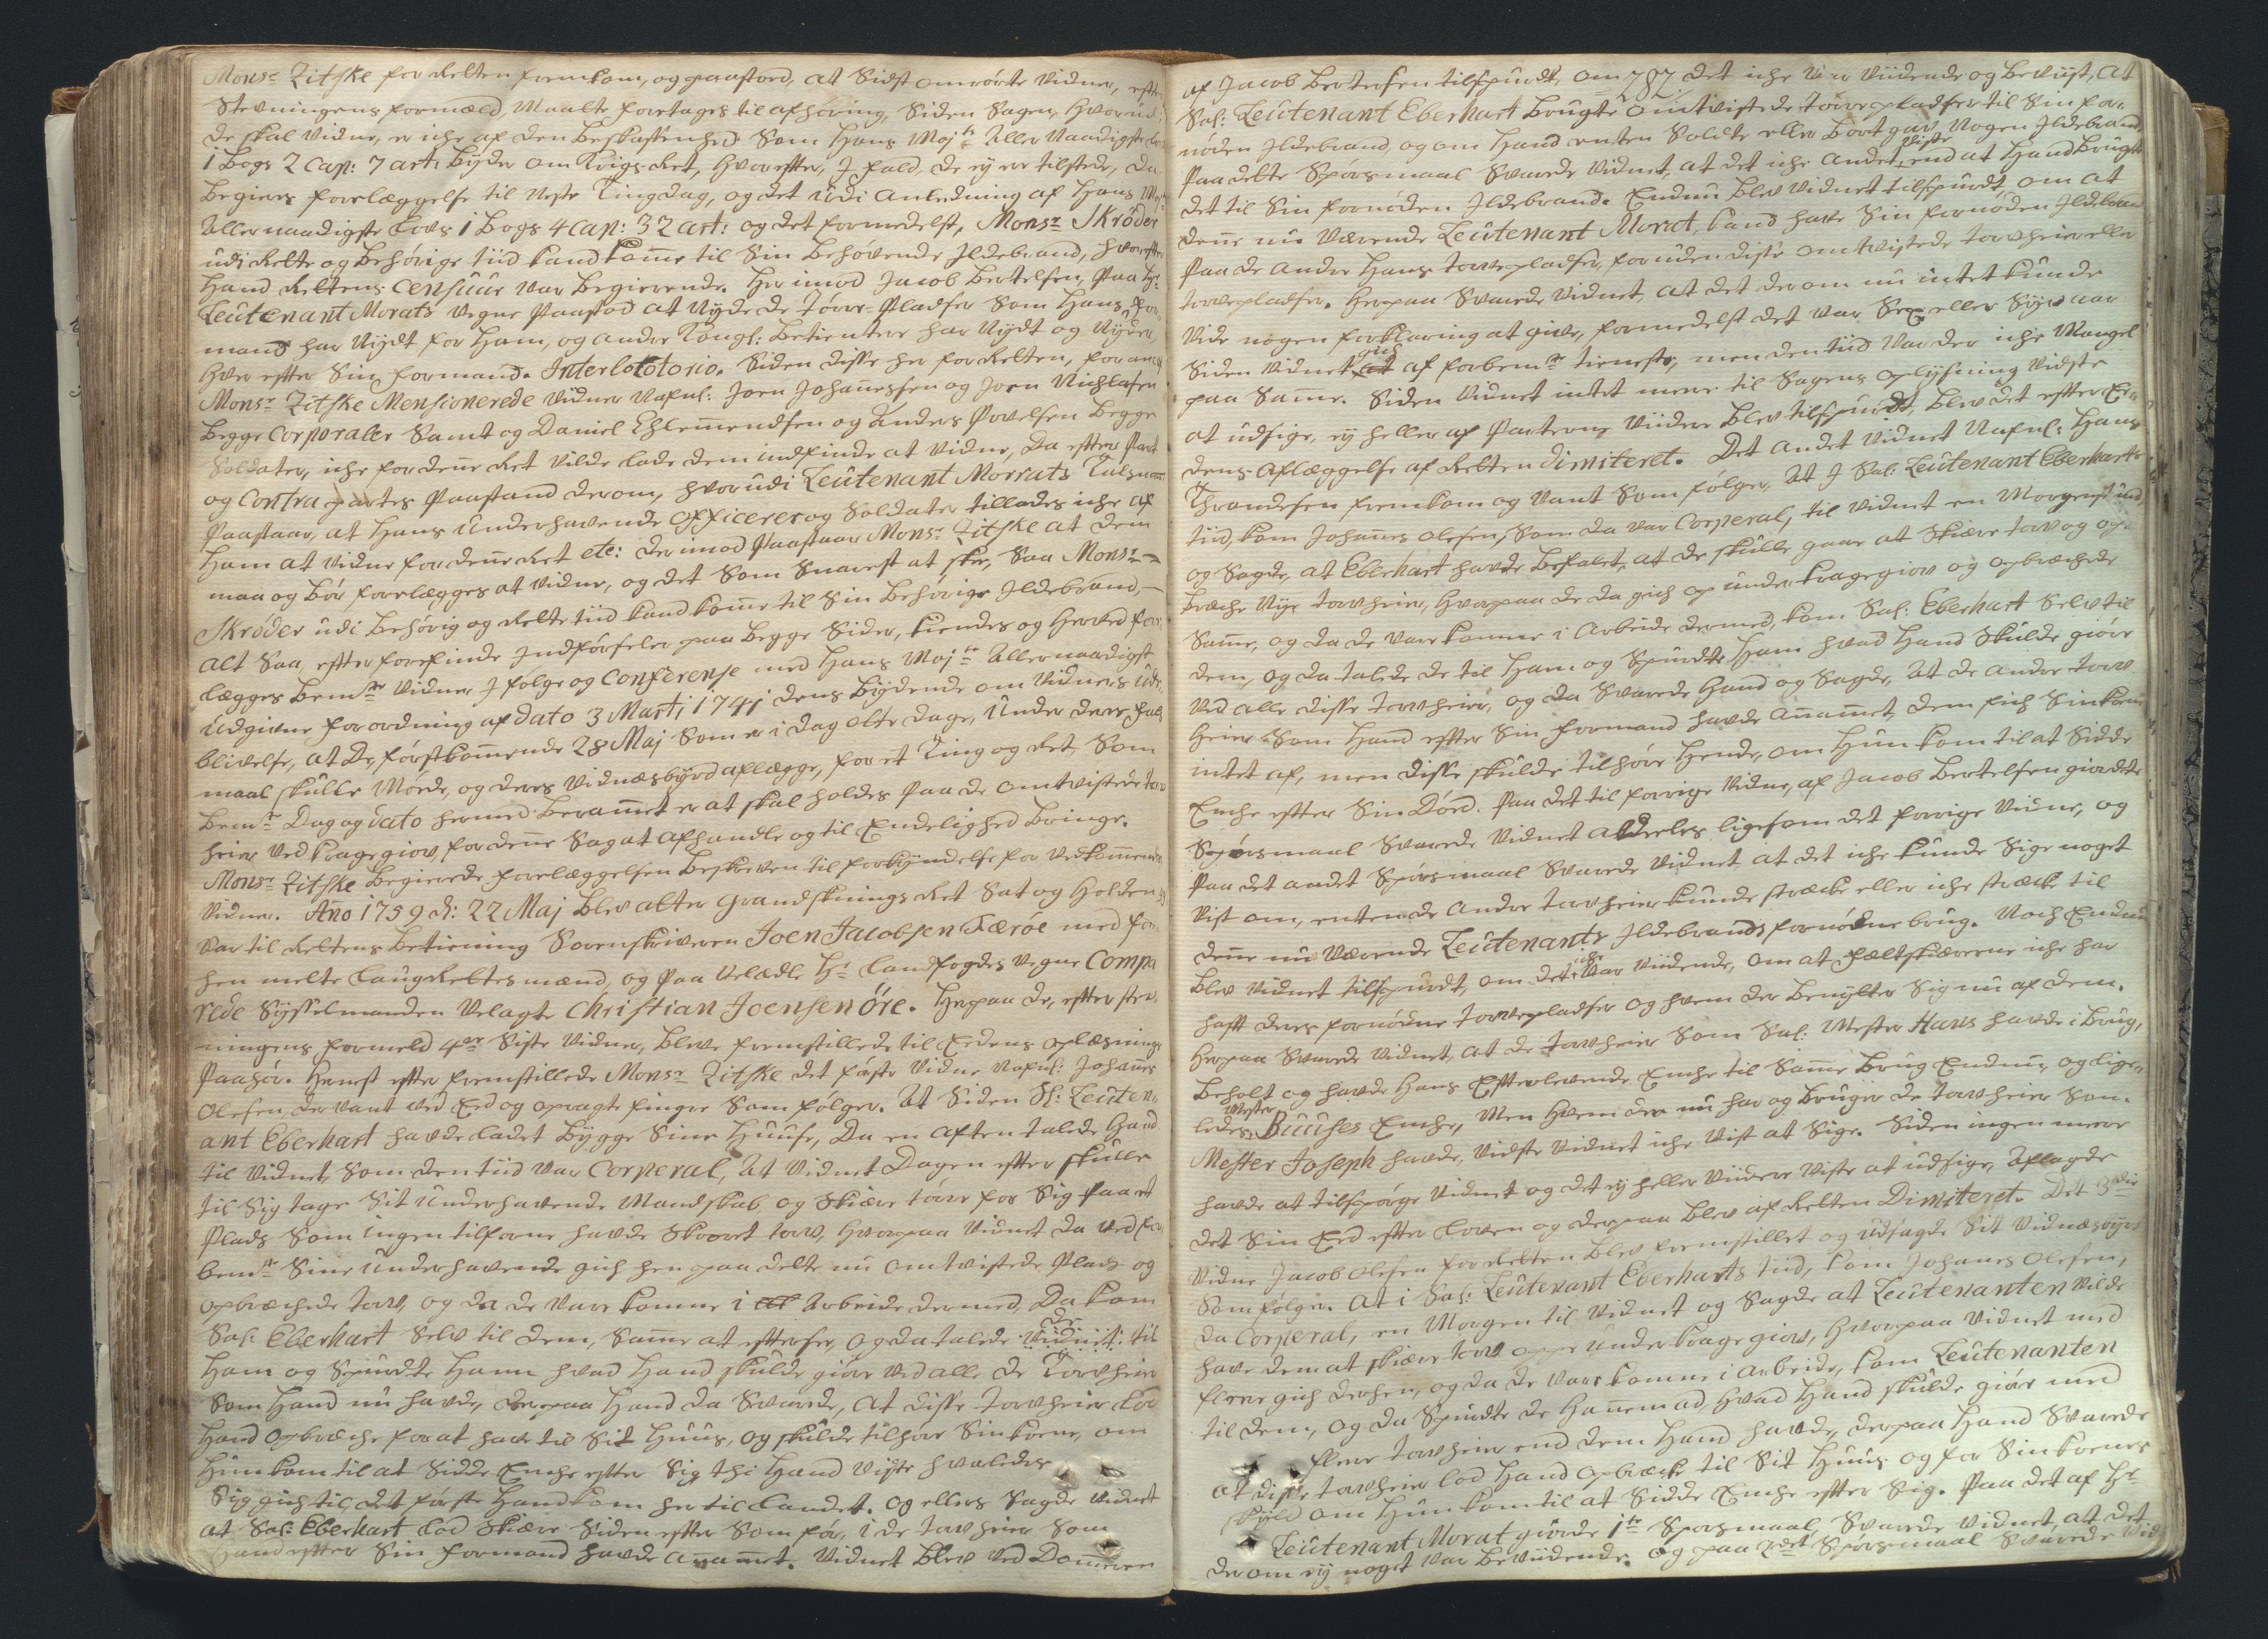 Monsr Zitske for Retten fremkom, og paastoed, at Sidst omrørte Vidner, efter
Stevningens formæld, maatte foretages til afhøring, Siden Sagen, hvorud¬
de skal Vidne, er iche af den beskaffenhed Som Hans Majts Aller Naadigste Lov
1 Bogs 2 Cap: 7 art: byder om Krigs Ret, hvorefter, J fald de ey ere tilstede, da
begieres forelæggelse til Neste Tingdag, og det udi Anledning af Hans Majts
Allernaadigste Lovs 1 Bogs 4 Cap: 32 art: og det formedelst, Monsr Skrøder
udi Rette og behørige tiid kand komme til Sin behøvende Jldebrand, hvorefter
Hand Rettens Censuur var begierende. Her imod Jacob Bertelsen, Paa Hr
Leutenant Morats Vegne Paastod at Nyde de Tørve Pladser Som Hans for¬
mand har Nydt for Ham, og andre Kongl: betientere har Nydt og Nyder,
hver efter Sin formand. Interlocotorio. Siden disse her for Retten, for an
Monsr Zitske Mensionerede Vidner Nafnl: Joen Johannessen og Joen Nichlasen
begge Corporaler Samt og Daniel Ehlemendsen og Anders Povelsen begge
Soldater, iche for denne Ret vilde lade dem indfinde at Vidne, da efter Part
og Contra partes Paastand derom, hvorudi Leutenant Morrats Talsmand
Paastaar, at Hans Underhavende Officerer og Soldater tillades iche af
Ham at Vidne for denne Ret etc: derimod Paastaar Monsr Zitske at dem
maa og bør forelægges at Vidne, og det Som Snarest at skee, Saa Monsr
Skrøder udi behørig og Rette tiid kand komme til Sin behørige Jldebrand,
alt Saa, efter forefindende Indførseler paa begge Sider, kiendes og herved fore
lægges bemte Vidner J følge og Conferense med Hans Majts Allernaadigst
Udgivne forordning af Dato 3 Marti 1741 dens bydende om Vidners Ude
blivelse, at de, førstkommende 28 Maj Som er i dag otte dage, Under deres fals
maal skulle Møde, og deres Vidnesbyrd aflægge, for et Ting og Ret, Som
bemte Dag og Dato hermed berammet er at skal holdes Paa de omtvistede torv
heier ved kragegiov, for denne Sag at afhandle og til Endelighed bringe.
Monsr Zitske begierede forelæggelsen beskreven til forkyndelse for Vedkommende
Vidner. Ano 1759 d: 22 Maj blev atter grandskningsRet Sat og Holden
var til Rettens betiening Sorenskriveren Joen Jacobsen Færøe med for
hen melte LaugRettes mænd, og Paa Velædle Hr Landfogdes Vegne Compa
rede Sysselmanden Velagte Christian Joensen Øre. Herpaa de, efter stev
ningens formeld 4er Siste Vidner, bleve fremstillede til Eedens oplæsnings
Paahør. Hernest efter fremstillede Monsr Zitske det første Vidne Nafnl: Johannes
Olesen, der vant ved Eed og opragte fingre Som følger. At Siden Sl: Leuten
ant Eberhart havde ladet bygge Sine Huuse, da en aften talede Hand
til Vidnet, Som den tiid var Corperal, At Vidnet Dagen efter skulle
til Sig tage Sit Underhavende Mandskab og skiære tørv for Sig Paa et
Plads Som ingen tilforne havde Skaaret torv, hvorpaa Vidnet da ved for
bemte Sine Underhavende gich hen paa dette nu omtvistede Plads og
opbrechede torv, og da de vare komne i Arbeide dermed, da kom
Sal: Eberhart Selv til dem, Samme at efterse, og da talede de til
Ham og Spurdte Ham hvad Hand skulde giøre ved alle de Torvheier
Som Hand nu havde, derpaa Hand da Svarede, at disse torvheier lod
Hand opbreche for at have til Sit Huus, og skulde tilhøre Sin kone, om
Hun kom til at Sidde Enche efter Sig thi Hand viste hvaledes
Sig gich til det første Hand kom her til Landet. og ellers Sagde Vidnet
at Sal: Eberhart lod skiære Siden efter Som før, i de torvheier Som
Hand efter Sin formand havde annammet. Vidnet blev ved Dommeren
282
af Jacob Bertelsen tilspurdt, om det iche var Viidende og bevist, At
Sal: Leutenant Eberhart brugte omtvistede tørvepladser til Sin for¬
nøden Jldebrand, og om Hand enten Solte eller bort gav Nogen Jldebrand,
Paa dette Spørsmaal Svarede Vidnet, at det iche andet viste end at Hand brugte
det til Sin fornøden Jldebrand. Endnu blev Vidnet tilspurdt, om at
denne nu Værende Leutenant Morat, kand have Sin fornøden Jldebrand
Paa de andre Hans torvepladser, foruden disse omtvistede torvheier eller
torvepladser. Herpaa Svarede Vidnet, at det derom nu intet kunde
Vide nogen forklaring at give, formedelst det var Sex eller Syv aar
Siden Vidnet gich af forbemte tieneste, men den tiid var der iche Mangel
paa Samme. Siden Vidnet intet mere til Sagens oplysning Vidste
at udsige, ey heller af Parterne Viidere blev tilspurdt, blev det efter Ee¬
dens aflæggelse af Retten dimiteret. Det andet Vidnet Nafnl: Hans
Throndesen fremkom og Vant Som følger, At J Sal: Leutenant Eberharts
tiid, kom Johannes olesen, Som da var Corperal, til Vidnet en Morgenstund,
og Sagde, at Eberhart havde befalet, at de skulle gaae at skiære torv og op
breche Nye torvheier, hvorpaa de da gich op under kragegiov og opbrechede
Samme, og da de vare komne i Arbeide dermed, kom Sal: Eberhart Selv til
dem, og da talede de til Ham og Spurdte Ham hvad Hand skulde giøre
ved alle disse torvheier, og da Svarede Hand og Sagde, At de andre torv
heier Som Hand efter Sin formand havde annammet, dem fich Sin kone
intet af, men disse skulde tilhøre Hende, om Hun kom til at Sidde
Enche efter Sin Død. Paa det til forrige Vidne, af Jacob Bertelsen giordte
Spørsmaal Svarede Vidnet aldeeles ligesom det forrige Vidne, og
Paa det andet Spørsmaal Svarede Vidnet at det iche kunde Sige noget
Vist om, enten de andre torvheier kunde strecke eller iche strecke til
denne nu Værende Leutenants Jldebrands fornødne brug. Noch Endnu
blev Vidnet tilspurdt, om det iche var Viidende, om at Feltskiærerne iche har
haft deres fornødne torvepladser og hvem der benytter Sig nu af dem.
Herpaa Svarede Vidnet, at de torvheier Som Sal: Mester Hans havde i brug,
beholt og havde Hans Efterlevende Enche til Samme brug Endnu, og lige¬
ledes Mester Buuses Enche, Men Hvem der nu har og bruger de torvheier Som
Mester Joseph havde, vidste Vidnet iche Vist at Sige. Siden ingen mere
havde at tilspørge Vidnet og det ey heller Viidere Viste at udsige, Aflagde
det Sin Eed efter Loven og derpaa blev af Retten Dimiteret. Det 3die
Vidne Jacob Olesen for Retten blev fremstillet og udsagde Sit Vidnesbyrd
Som følger. At i Sal: Leutenant Eberharts tiid, kom Johannes Olesen,
da Corperal, en Morgen til Vidnet og Sagde at Leutenanten vilde
have dem at skiære torv oppe under kragegiov, hvorpaa Vidnet med
flere gich derhen, og da de vare komne i arbeide, kom Leutenanten
til dem, og da Spurdte de Hannem ad, hvad Hand skulde giøre med
flere torvheier end dem Hand havde, derpaa Hand Svarede
at disse torvheier lod Hand opbreche til Sit Huus og for Sin kones
skyld om Hun kom til at Sidde Enche efter Sig. Paa det af Hr
Leutenant Morat giorde 1te Spørsmaal, Svarede Vidnet, at det
derom ey noget var bevidende. og paa 2det Spørsmaal Svarede Vid